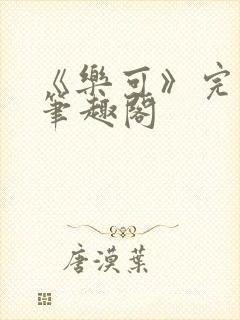 《樂可》完
筆趣閣
唐漠葉